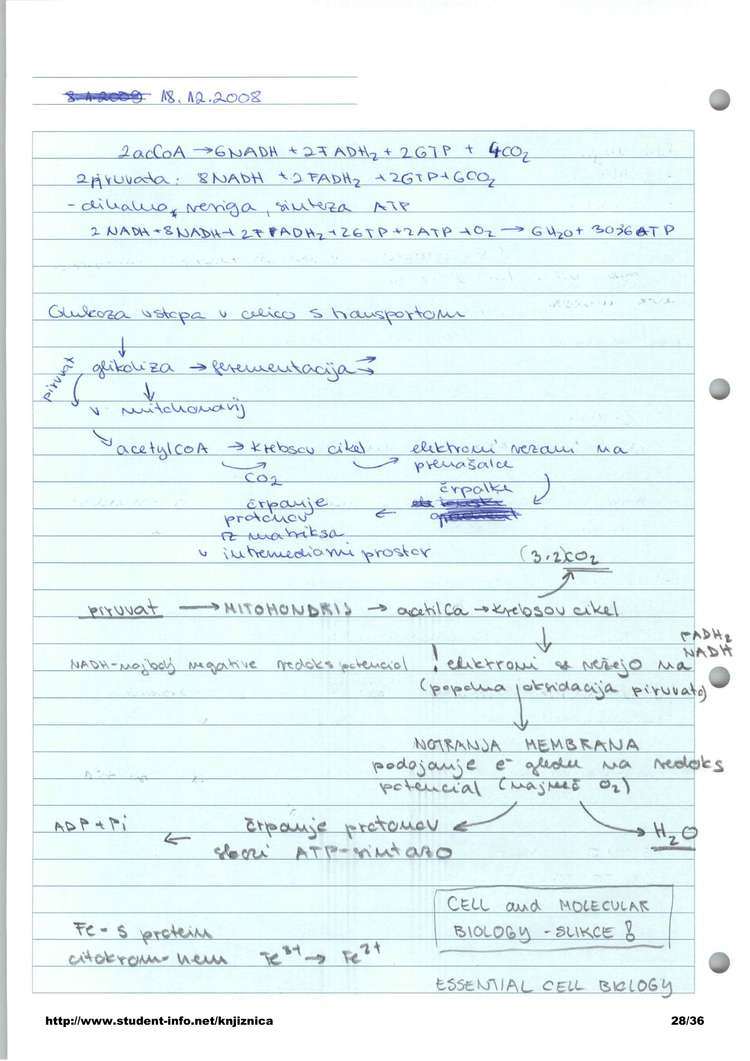 18.12.2008
2acCoA → 6NADH + 2FADH₂ + 2GTP + 4CO₂
2 piruvata: 8NADH + 2FADH₂ + 2GTP + 6CO₂
- dihalna veriga, sinteza ATP
2 NADH + 8NADH + 2FADH₂ + 2GTP + 2ATP + O₂ → 6H₂O + ATP
Glukoza vstopa v celico s transportom
piruvat
glikoliza → ferementacija
v mitohondrij
acetylCoA → Krebsov cikel elektroni vezani na
prenašalce
CO₂
črpalke
črpanje
protonov ←
iz matriksa
v intremediarni prostor
(3.2)CO₂
piruvat → MITOHONDRIJ → acetilCa → Krebsov cikel
FADH₂
NADH
NADH - najbolj negative redoks potencial ! elektroni se vežejo na
(popolna oksidacija piruvata)
NOTRANJA MEMBRANA
podajanje e⁻ glede na redoks
potencial (največ O₂)
ADP + Pi ← črpanje protonov H₂O
skozi ATP-sintazo
CELL and MOLECULAR
BIOLOGY - SLIKCE !
Fe - S protein
citokrom - hem Fe³⁺ → Fe²⁺
ESSENTIAL CELL BIOLOGY
http://www.student-info.net/knjiznica 28/36